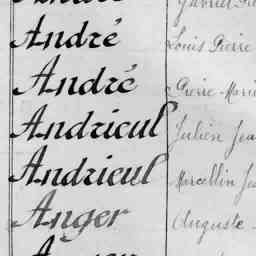 André Louis Pierre
André Pierre Marie
Andrieul Julien Jea
Andrieul Marcellin Je
Anger Auguste